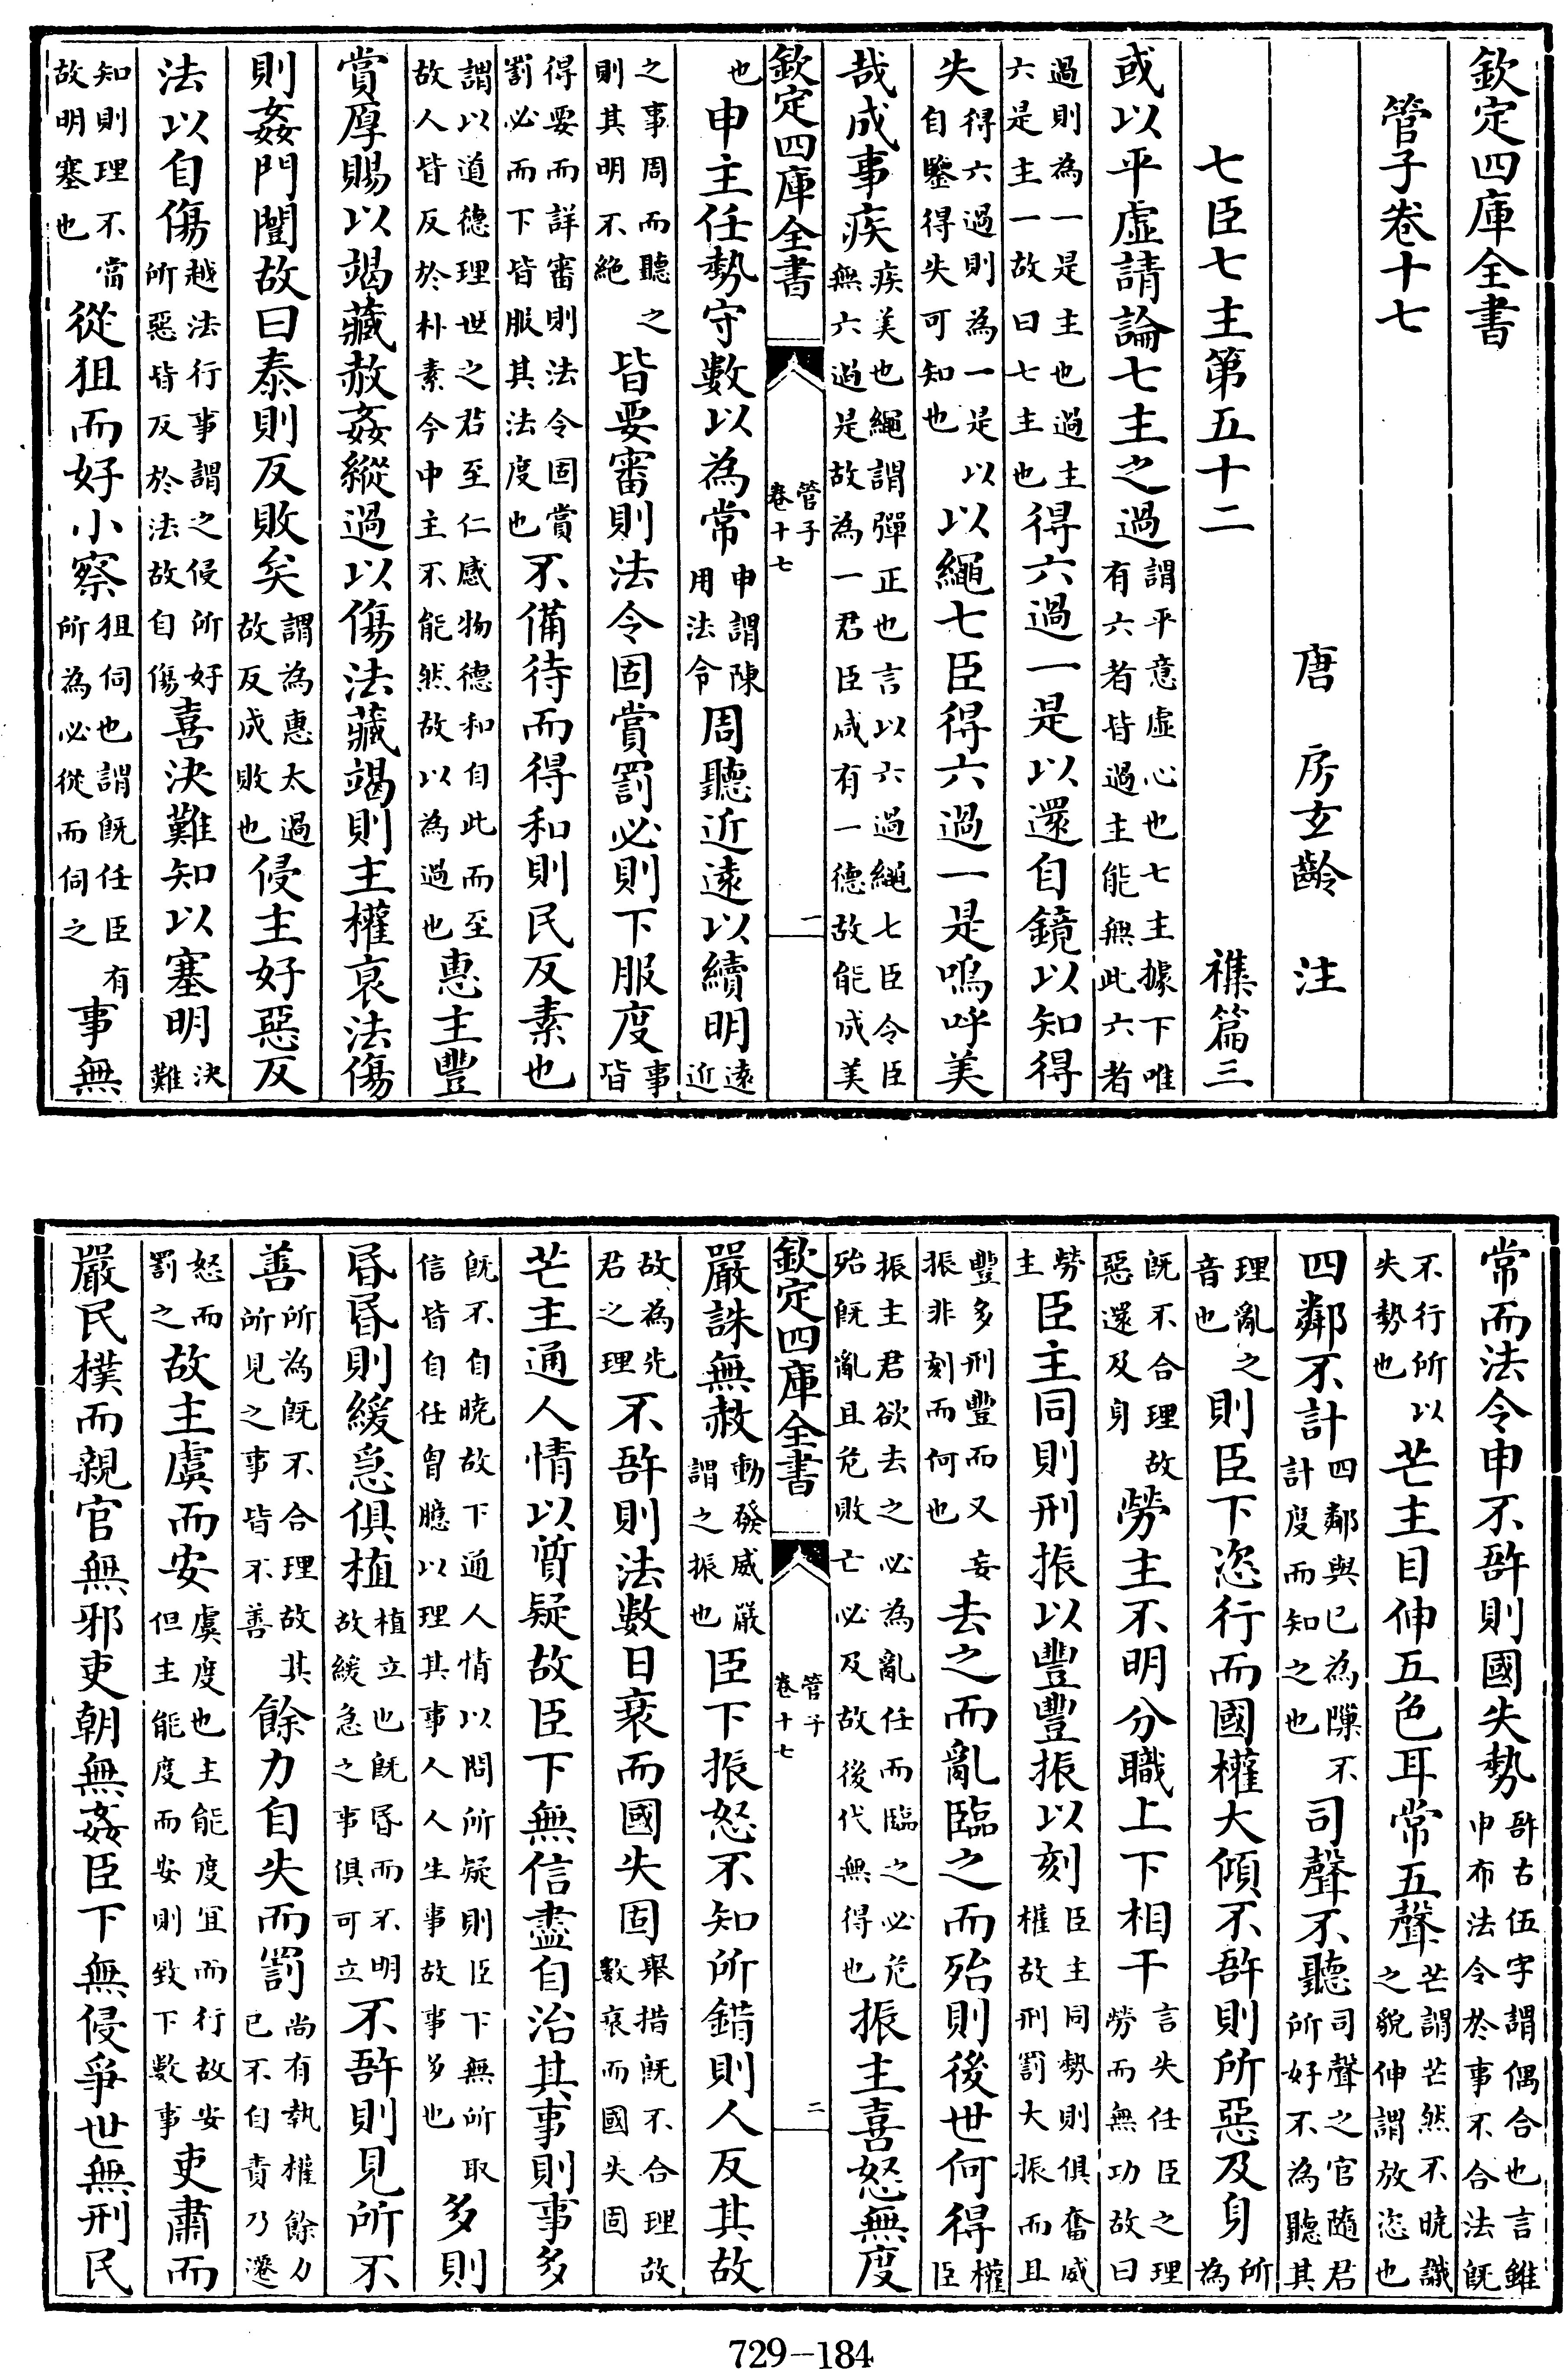 欽定四庫全書
管子卷十七
唐　房玄齡　注
七臣七主第五十二　襍篇三
或以平虛請論七主之過謂平意虛心也七主據下唯有六者皆過主能無此六者
過則為一是主也過主六是主一故曰七主也得六過一是以還自鏡以知得
失得六過則為一是以自鑒得失可知也以繩七臣得六過一是嗚呼美
哉成事疾疾美也繩謂彈正也言以六過繩七臣令臣無六過是故為一君臣咸有一德故能成美
欽定四庫全書　管子卷十七　一
也申主任勢守數以為常申謂陳用法令周聽近遠以續明遠近
之事周而聽之則其明不絕皆要審則法令固賞罰必則下服度事皆
得要而詳審則法令固賞罰必而下皆服其法度也不備待而得和則民反素也
謂以道德理世之君至仁感物德和自此而至故人皆反於朴素今中主不能然故以為過也惠主豐
賞厚賜以竭藏赦姦縱過以傷法藏竭則主權衰法傷
則姦門闓故曰泰則反敗矣謂為惠太過故反成敗也侵主好惡反
法以自傷越法行事謂之侵所好所惡皆反於法故自傷喜決難知以塞明決難
知則理不當故明塞也從狙而好小察狙伺也謂既任臣有所為必從而伺之事無
常而法令申不啎則國失勢啎古伍字謂偶合也言雖申布法令於事不合法既
不行所以失勢也芒主目伸五色耳常五聲芒謂芒然不曉識之貌伸謂放恣也
四鄰不計四鄰與已為隟不計度而知之也司聲不聽司聲之官隨君所好不為聽其
理亂之音也則臣下恣行而國權大傾不啎則所惡及身所為
既不合理故惡還及身勞主不明分職上下相干言失任臣之理勞而無功故曰
勞主臣主同則刑振以豐豐振以刻臣主同勢則俱奮威權故刑罰大振而且
豐多刑豐而又妄振非刻而何也去之而亂臨之而殆則後世何得權臣
振主君欲去之必為亂任而臨之必危殆既亂且危敗亡必及故後代無得也振主喜怒無度
欽定四庫全書　管子卷十七　二
嚴誅無赦動發威嚴謂之振也臣下振怒不知所錯則人反其故
故為先君之理不啎則法數日衰而國失固舉措既不合理故數衰而國失固
芒主通人情以質疑故臣下無信盡自治其事則事多
既不自曉故下通人情以問所疑則臣下無所取信皆自任胷臆以理其事人人生事故事多也多則
昬昬則緩急俱植植立也既昬而不明故緩急之事俱可立不啎則見所不
善所為既不合理故其所見之事皆不善餘力自失而罰尚有執權餘力已不自責乃遷
怒而罰之故主虞而安虞度也主能度宜而行故安但主能度而安則致下數事吏肅而
嚴民樸而親官無邪吏朝無姦臣下無侵爭世無刑民
729—184